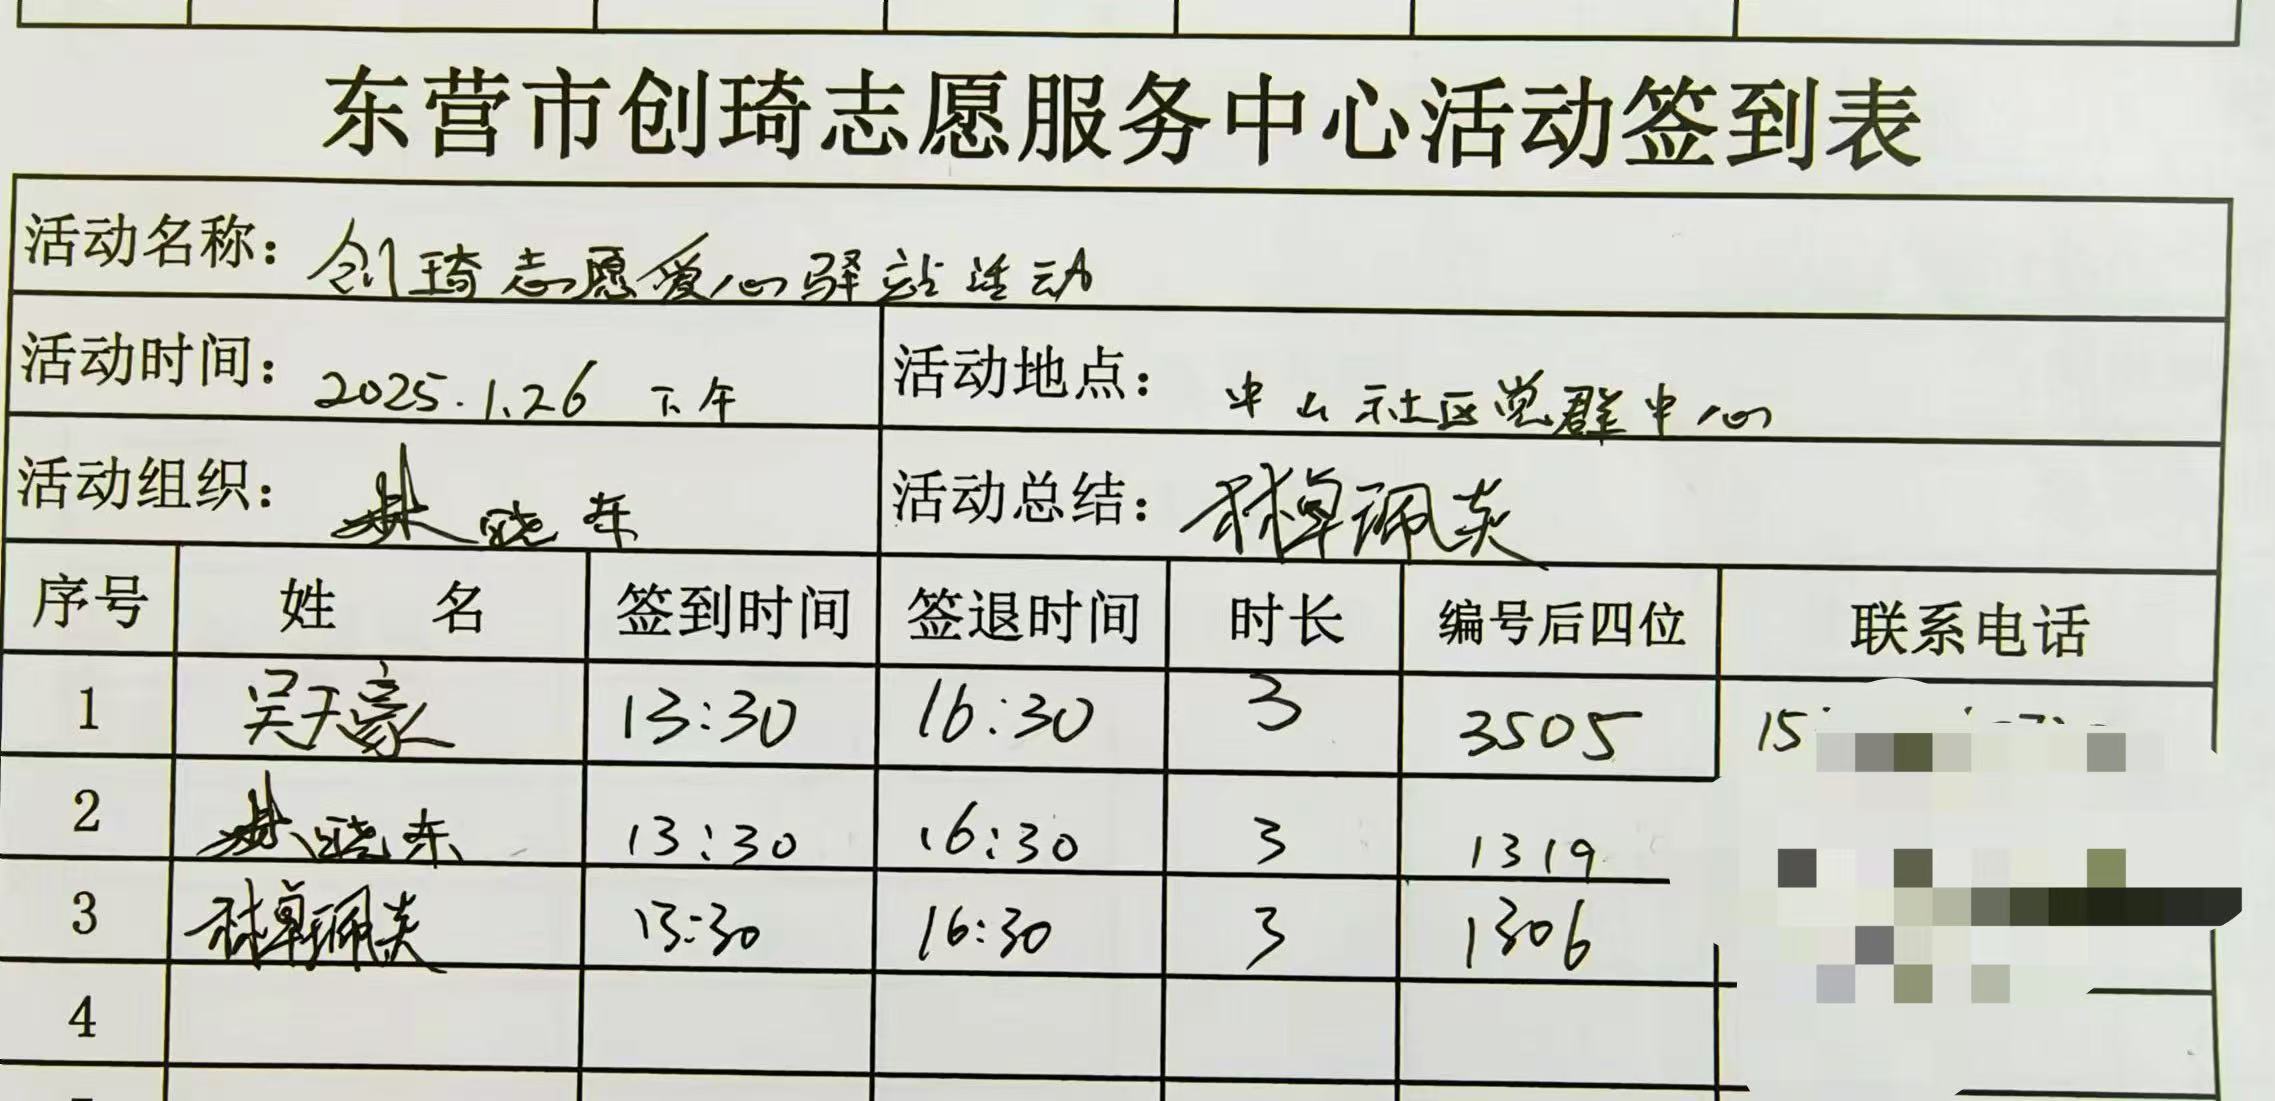 东营市创琦志愿服务中心活动签到表
活动名称：创琦志愿爱心驿站活动
活动时间：2025.1.26 下午 活动地点：中山社区党群中心
活动组织：晓东 活动总结：林卓珮炎
序号 姓 名 签到时间 签退时间 时长 编号后四位 联系电话
1 吴天豪 13:30 16:30 3 3505 15
2 晓东 13:30 16:30 3 1319
3 林卓珮炎 13:30 16:30 3 1306
4